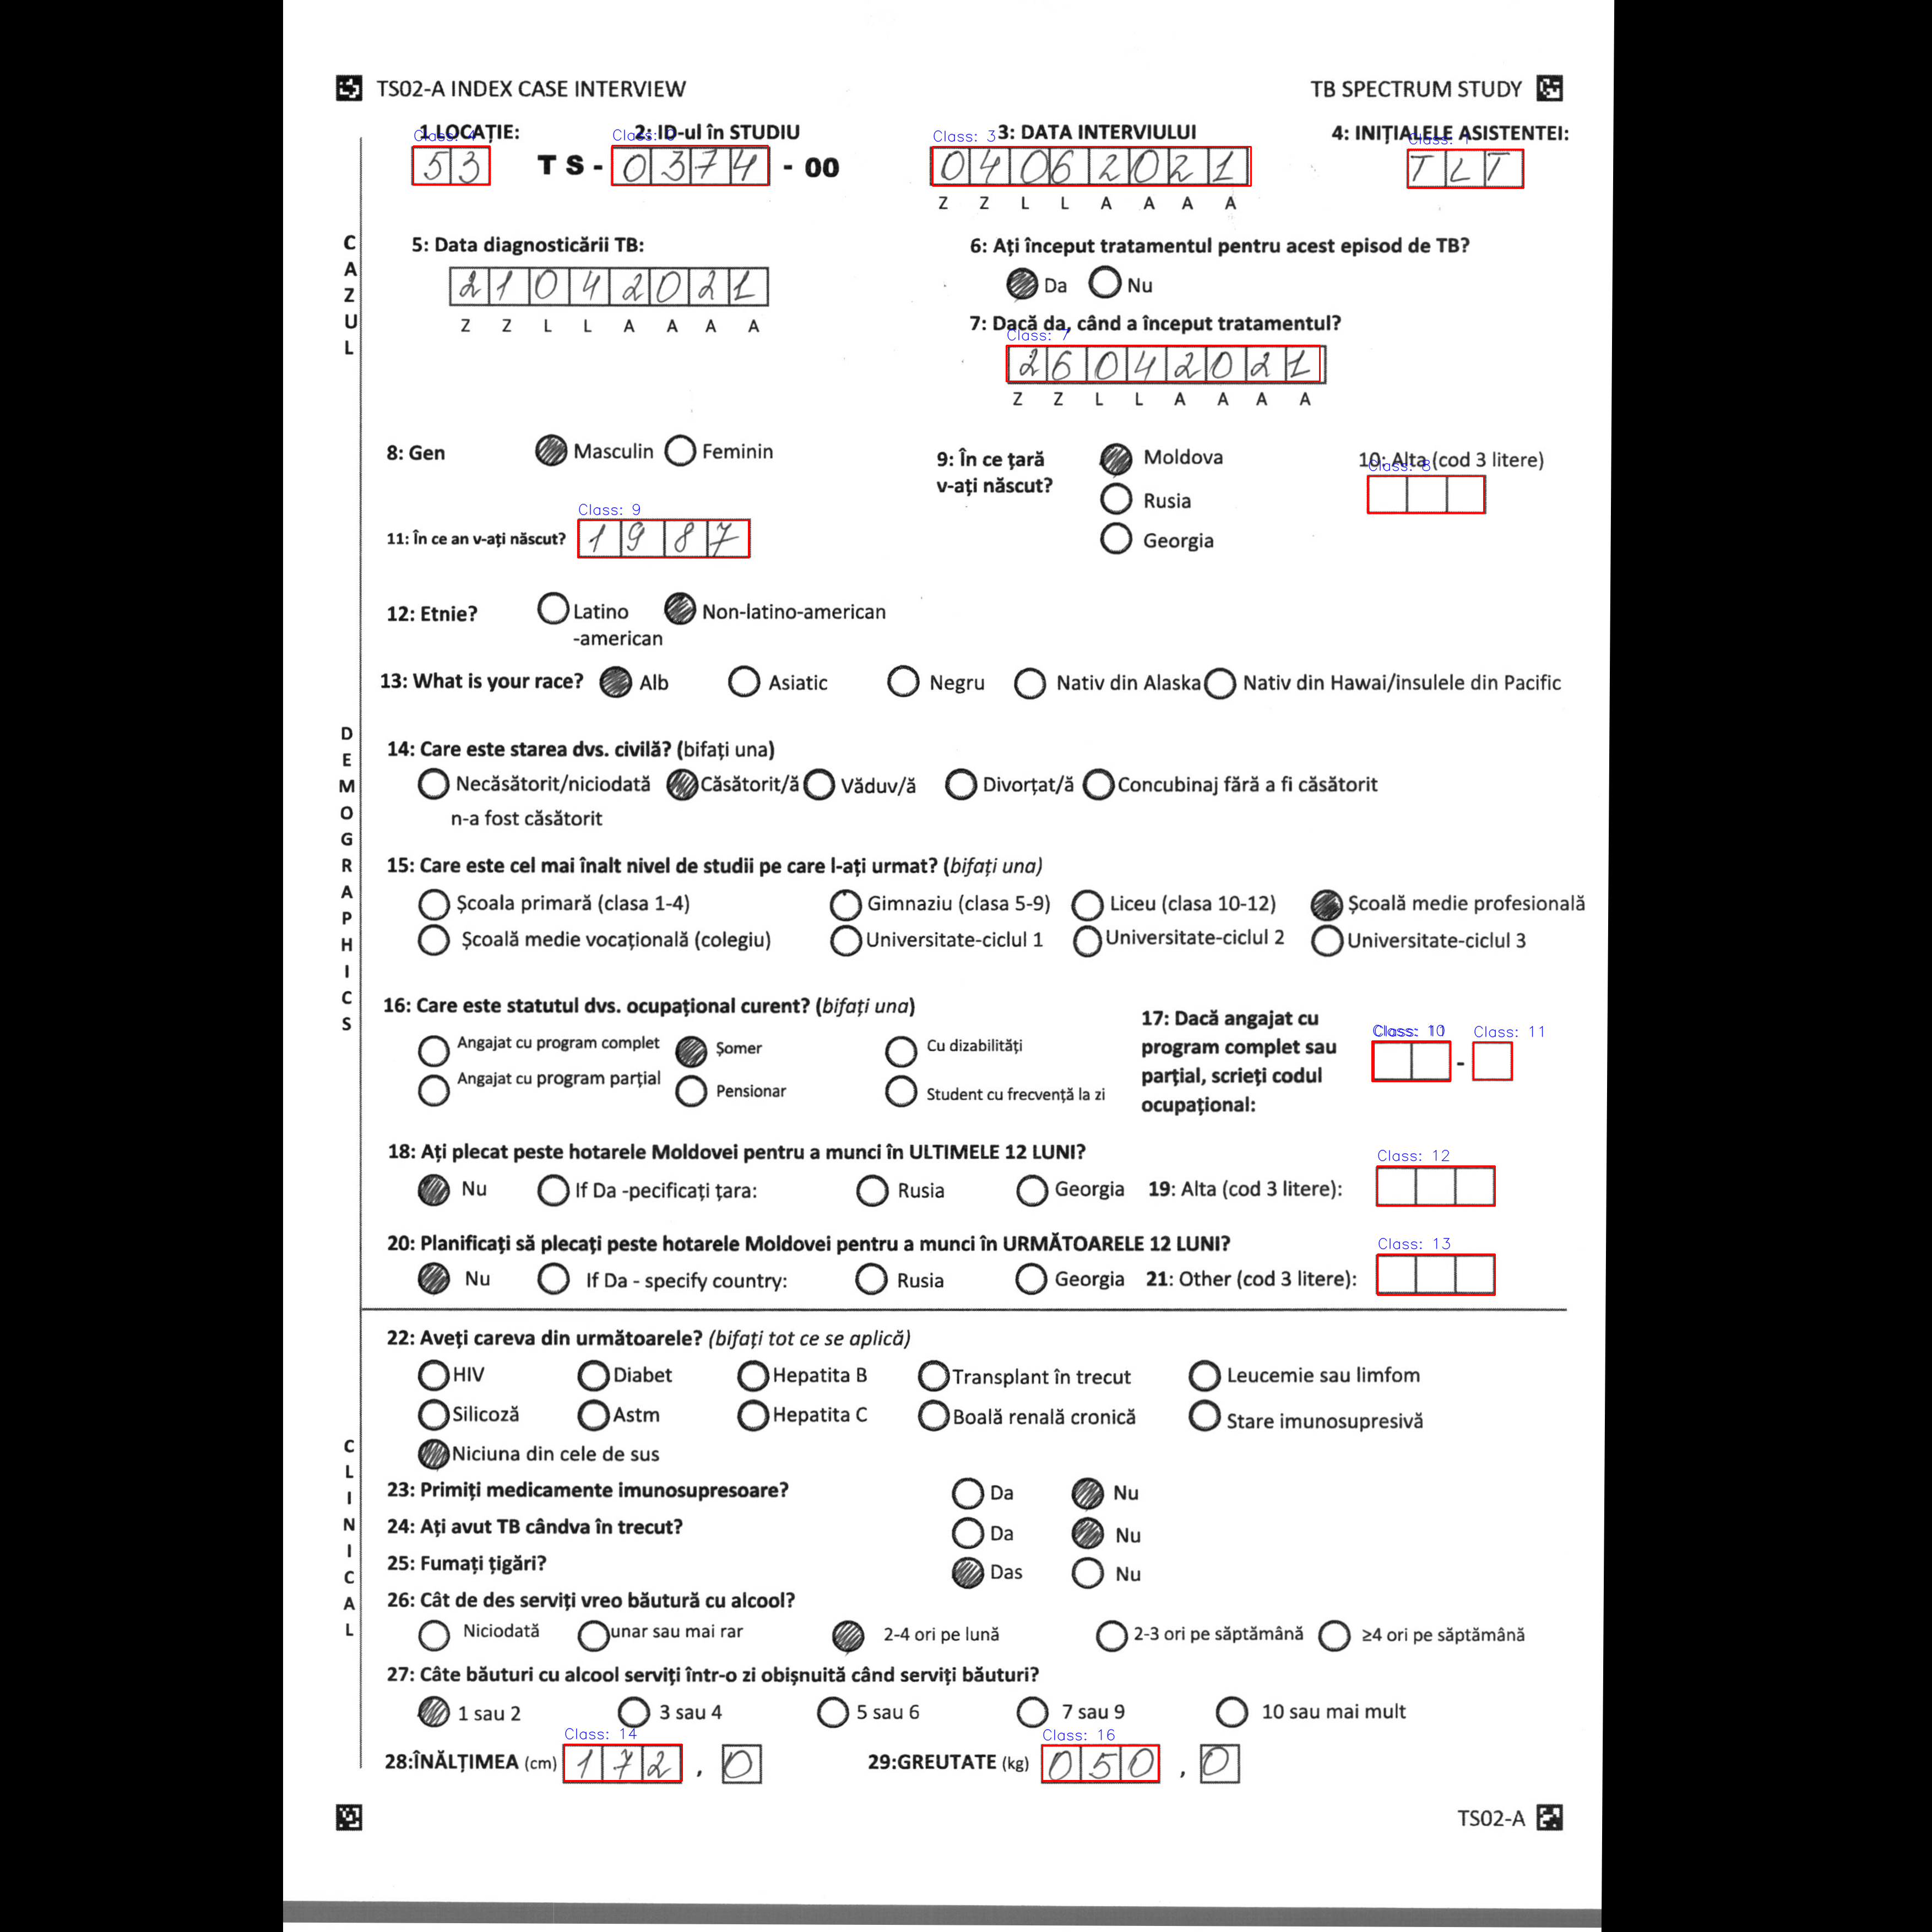 TS02-A INDEX CASE INTERVIEW TB SPECTRUM STUDY
1 LOCAȚIE: 2: ID-ul în STUDIU 3: DATA INTERVIULUI 4: INIȚIALELE ASISTENTEI:
Class: 4 Class: Class: 3 Class:
53 TS- 0374 - 00 04062021 TLT
Z Z L L A A A A
CAZUL
5: Data diagnosticării TB: 6: Ați început tratamentul pentru acest episod de TB?
21042021 Da Nu
Z Z L L A A A A 7: Dacă da, când a început tratamentul?
Class: 7
26042021
Z Z L L A A A A
8: Gen Masculin Feminin 9: În ce țară v-ați născut? Moldova 10: Alta (cod 3 litere)
Class: 8
Rusia
Class: 9
11: În ce an v-ați născut? 1987 Georgia
12: Etnie? Latino Non-latino-american
-american
13: What is your race? Alb Asiatic Negru Nativ din Alaska Nativ din Hawai/insulele din Pacific
DEMOGRAPHICS
14: Care este starea dvs. civilă? (bifați una)
Necăsătorit/niciodată Căsătorit/ă Văduv/ă Divorțat/ă Concubinaj fără a fi căsătorit
n-a fost căsătorit
15: Care este cel mai înalt nivel de studii pe care l-ați urmat? (bifați una)
Școala primară (clasa 1-4) Gimnaziu (clasa 5-9) Liceu (clasa 10-12) Școală medie profesională
Școală medie vocațională (colegiu) Universitate-ciclul 1 Universitate-ciclul 2 Universitate-ciclul 3
16: Care este statutul dvs. ocupațional curent? (bifați una)
Angajat cu program complet Șomer Cu dizabilități
Angajat cu program parțial Pensionar Student cu frecvență la zi
17: Dacă angajat cu
program complet sau
parțial, scrieți codul
ocupațional:
Class: 10 Class: 11
-
18: Ați plecat peste hotarele Moldovei pentru a munci în ULTIMELE 12 LUNI?
Class: 12
Nu If Da -pecificați țara: Rusia Georgia 19: Alta (cod 3 litere):
20: Planificați să plecați peste hotarele Moldovei pentru a munci în URMĂTOARELE 12 LUNI?
Class: 13
Nu If Da - specify country: Rusia Georgia 21: Other (cod 3 litere):
CLINICAL
22: Aveți careva din următoarele? (bifați tot ce se aplică)
HIV Diabet Hepatita B Transplant în trecut Leucemie sau limfom
Silicoză Astm Hepatita C Boală renală cronică Stare imunosupresivă
Niciuna din cele de sus
23: Primiți medicamente imunosupresoare? Da Nu
24: Ați avut TB cândva în trecut? Da Nu
25: Fumați țigări? Das Nu
26: Cât de des serviți vreo băutură cu alcool?
Niciodată unar sau mai rar 2-4 ori pe lună 2-3 ori pe săptămână ≥4 ori pe săptămână
27: Câte băuturi cu alcool serviți într-o zi obișnuită când serviți băuturi?
1 sau 2 3 sau 4 5 sau 6 7 sau 9 10 sau mai mult
Class: 14 Class: 16
28:ÎNĂLȚIMEA (cm) 172 , 0 29:GREUTATE (kg) 050 , 0
TS02-A